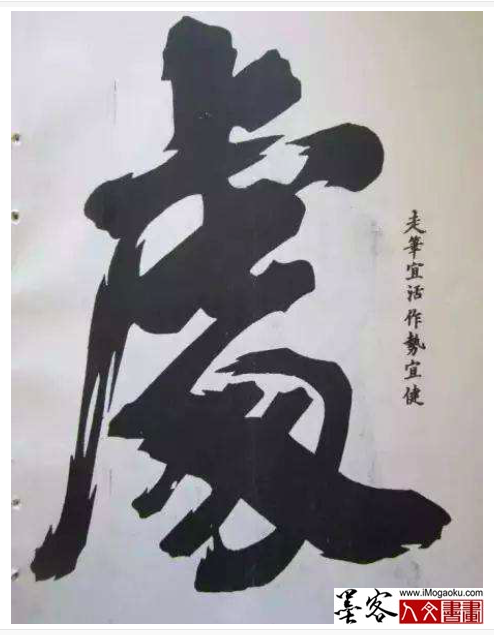 處
走筆宜活作勢宜健
www.iMogaoku.com
墨客
人文書畫